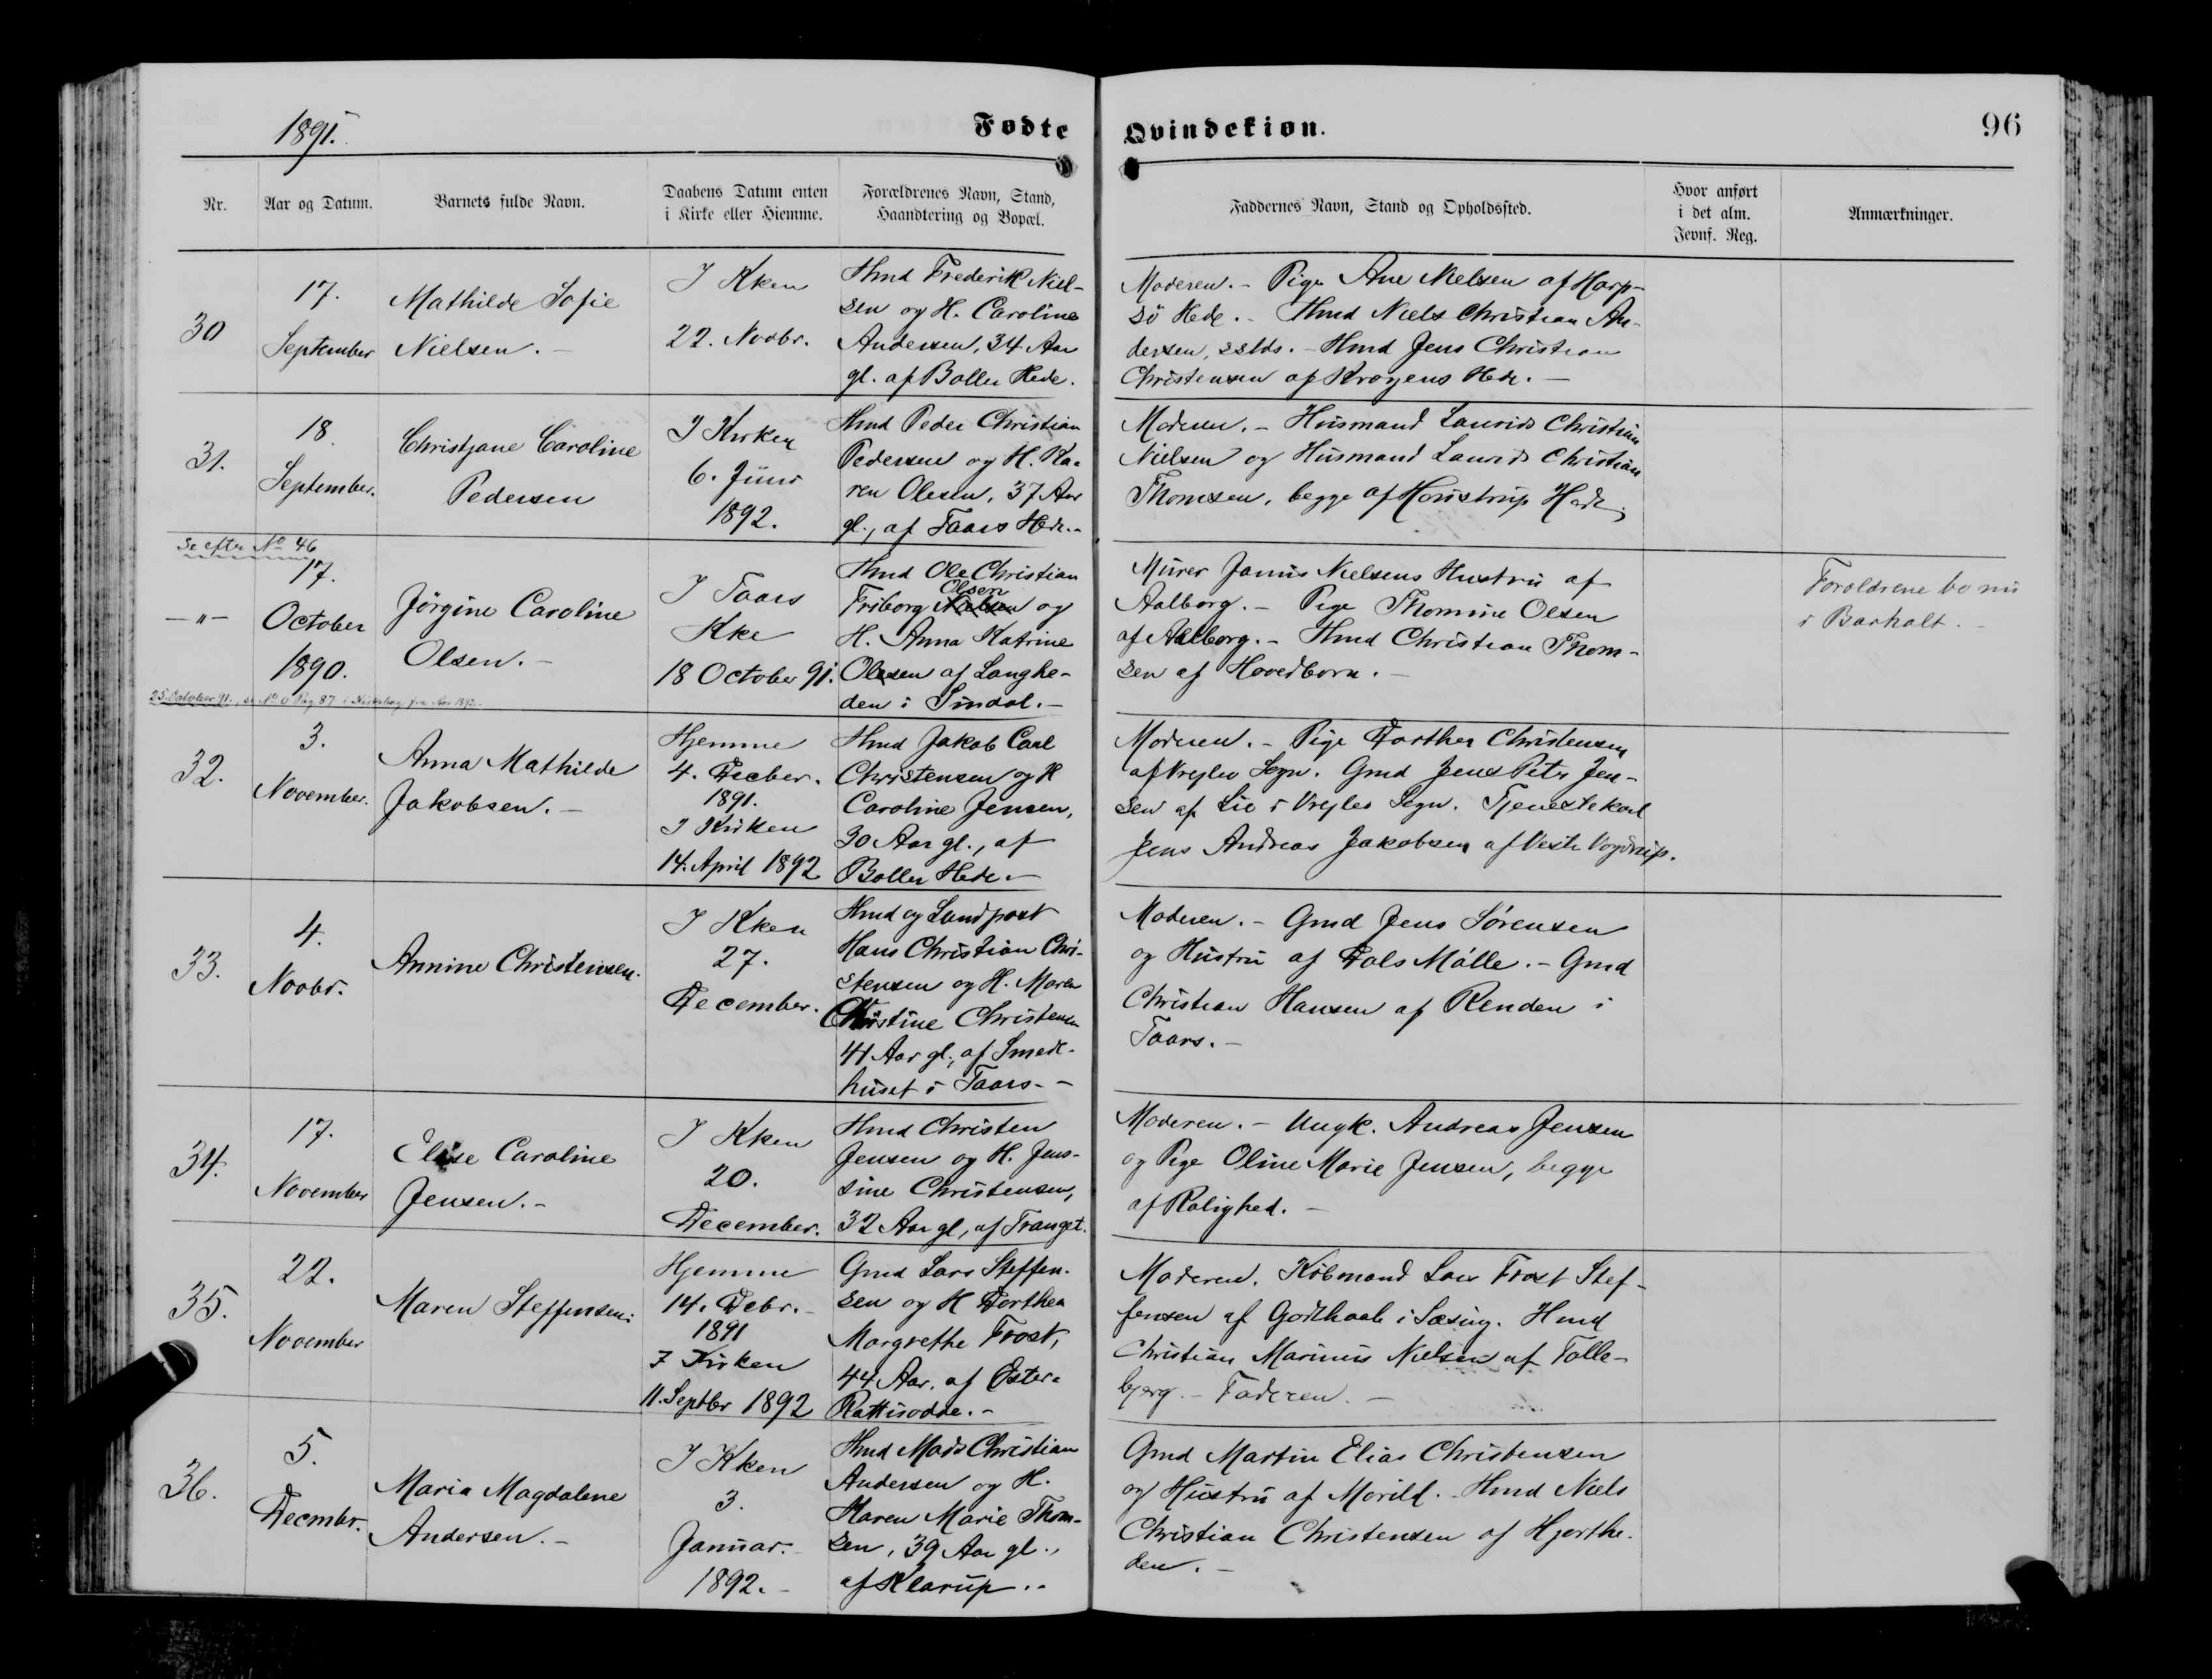 1891.
Fødte Qvindekiøn.
96
Nr.
Aar og Datum.
Barnets fulde Navn.
Daabens Datum enten
i Kirke eller Hiemme.
Forældrenes Navn, Stand,
Haandtering og Bopæl.
Faddernes Navn, Stand og Opholdssted.
Hvor anført
i det alm.
Jevnf. Reg.
Anmærkninger.
30
17.
September
Mathilde Sofie
Nielsen.-
I Kken
22. Novbr.
Hmd Frederik Niel-
sen og H. Caroline
Andersen, 34 Aar
gl. af Boller Hede.
Moderen.- Pige Ane Nielsen af Harp-
sö Hede.- Hmd Niels Christian An-
dersen, sslds.- Hmd Jens Christian
Christensen af Krøgens Hede.-
31.
18.
September.
Christjane Caroline
Pedersen
I Kirken
6. Juni
1892.
Hmd Peder Christian
Pedersen og H. Ka-
ren Olesen, 37 Aar
gl., af Taars Hede.-
Moderen.- Husmand Laurids Christian
Nielsen og Husmand Laurids Christian
Thomsen, begge af Houstrup Hede.
Se eftr No 46
-"-
17.
October
1890.
25 October 91., se No 6 Pag 87 i Kirkebog fra Aar 1892.
Jörgine Caroline
Olsen.-
I Taars
Kke
18 October 91.
Hmd Ole Christian
Olsen
Friborg Nielsen og
H. Anna Katrine
Olesen af Langhe-
den i Sindal.-
Murer Janus Nielsens Hustru af
Aalborg.- Pige Thomine Olsen
af Aalborg.- Hmd Christian Thom-
sen af Hovedborn.-
Foreldrene bo nu
i Barhalt.-
32.
3.
November.
Anna Mathilde
Jakobsen.-
Hjemme
4. Decber.
1891.
I Kirken
14. April 1892
Hmd Jakob Carl
Christensen og H
Caroline Jensen,
30 Aar gl., af
Boller Hede.-
Moderen.- Pige Dorthea Christensen
af Vrejlev Sogn. Gmd Jens Petr Jen-
sen af Lie i Vrejlev Sogn. Tjenestekarl
Jens Andreas Jakobsen af Vestr Vogdrup.
33.
4.
Novbr.
Annine Christensen.
I Kken
27.
December.
Hmd og Landpost
Hans Christian Chri-
stensen og H. Maren
Christine Christensen
41 Aar gl., af Smede-
huset i Taars.-
Moderen.- Gmd Jens Sörensen
og Hustru af Dals Mölle.- Gmd
Christian Hansen af Renden i
Taars.-
34.
17.
November
Elise Caroline
Jensen.-
I Kken
20.
December.
Hmd Christen
Jensen og H. Jens-
sine Christensen,
32 Aar gl., af Tranget.
Moderen.- Ungk. Andreas Jensen
og Pige Oline Marie Jensen, begge
af Rolighed.-
35.
22.
November
Maren Steffensen.
Hjemme
14. Decbr.-
1891
I Kirken
11. Septbr 1892
Gmd Lars Steffen-
sen og H Dorthea
Margrethe Frost,
44 Aar. af Øster-
Rattisodde.-
Moderen. Købmand Lars Frost Stef-
fensen af Godthaab i Sæsing. Hmd
Christian Marinus Nielsen af Tolle-
bjerg.- Faderen.-
36.
5.
Decembr.
Maria Magdalene
Andersen.-
I Kken
3.
Januar.
1892.-
Hmd Mads Christian
Andersen og H.
Maren Marie Thom-
sen, 39 Aar gl.,
af Klarup.-
Gmd Martin Elias Christensen
og Hustru af Morild.- Hmd Niels
Christian Christensen af Hjorthe-
den.-